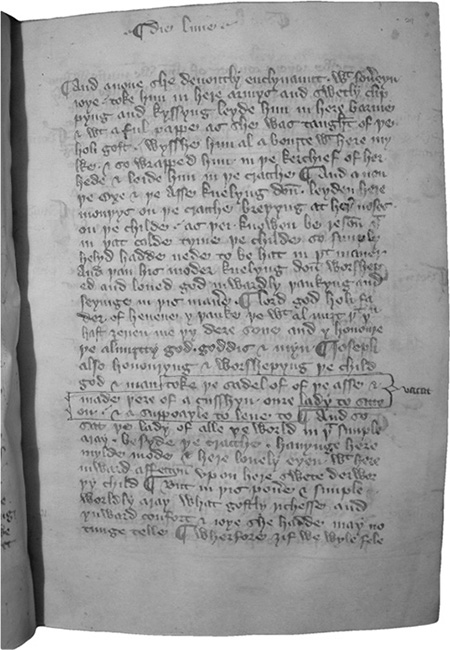 ¶ die lune
¶ And anone she deuoutly enclynaunt · wt souereyn
ioye · toke him in here armys and swetly clip
pyng and kyssyng leyde him in here barme
& wt a ful pappe as she was tauȝt of þe
holi gost · wysshe him al a boute wt here my
lke · & so wrapped him in þe kerchief of her
hede & leide him in þe cracche ¶ And a non
þe oxe & þe asse knelyng doun · leyden here
mouþys on þe cracche breþyng at her noses
on þe childe · as þei knowen be reson þt
in þat colde tyme þe childe so simply
helyd hadde nede to be hatt in þt maner ·
And þan his moder knelyng doun worshep
ed and loued god inwardly þankyng and
seyinge in þis maner · ¶ lord god holi fa
der of heuene y þanke þe wt al myȝt þt þu
hast ȝeuen me þy dere sone and y honoure
þe almyȝty god · goddis & myn ¶ Joseph
also honouryng & worshepyng þe child
god & man toke þe sadel of of þe asse &
made þere of a cusshyn · oure lady to sitty
on · & a suppoayle to lene to ¶ And so
vacat
sat þe lady of alle þe world in þt simple
aray · besyde þe cracche · hauynge here
mylde mode & here louely eyen · wt here
inward affectyn vpon here swete derwor
þy child ¶ But in þis pouere & simple
worldly aray what gostly richesse and
ynward confort & ioye she hadde may no
tunge telle ¶ Wherfore ȝif we wyle fele